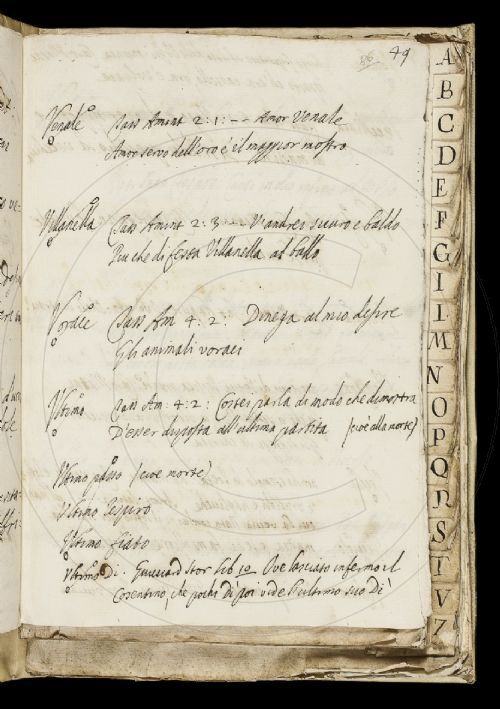 49
Venale Tass Amint 2: 1: -- Amor Venale
Amor servo dell'oro è il maggior mostro
Villanella Tass Amint 2: 3 --- V'andrei sicuro e baldo
Più che di festa Villanella al ballo
Vorace Tass Am 4: 2: Dinega al mio desire
Gli animali voraci
Ultimo Tass Am: 4: 2: Costei parla di modo che dimostra
D'esser disposta all'ultima partita (cioè alla morte)
Ultimo passo (cioè morte)
Ultimo sospiro
Ultimo fiato
Ultimo Di. Guicciard Stor lib 10 Ove lasciato infermo il
Cosentino, che pochi dì poi vide l'ultimo suo Dì
A
B
C
D
E
F
G
I
L
M
N
O
P
Q
R
S
T
V
Z